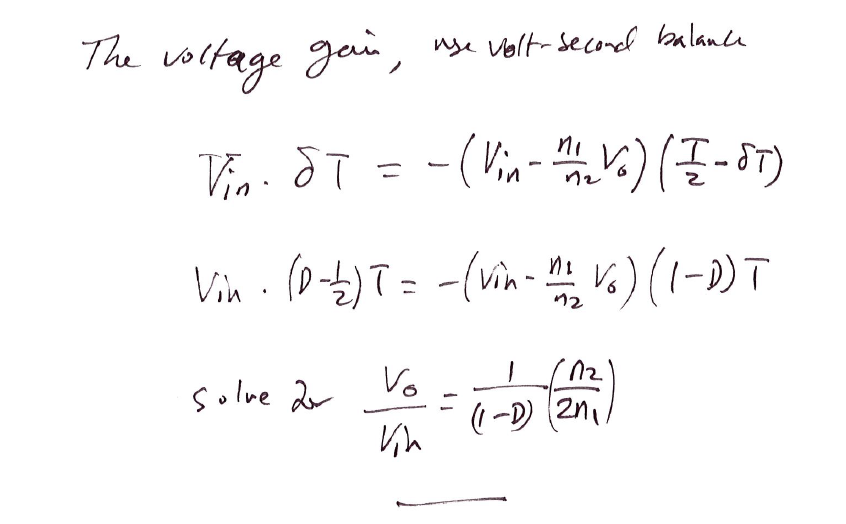 The voltage gain, use volt-second balance
Vin · δT = -(Vin - n1/n2 Vo)(T/2 - δT)
Vin · (D - 1/2)T = -(Vin - n1/n2 Vo)(1-D)T
solve Vo/Vin = 1/(1-D) (n2/2n1)